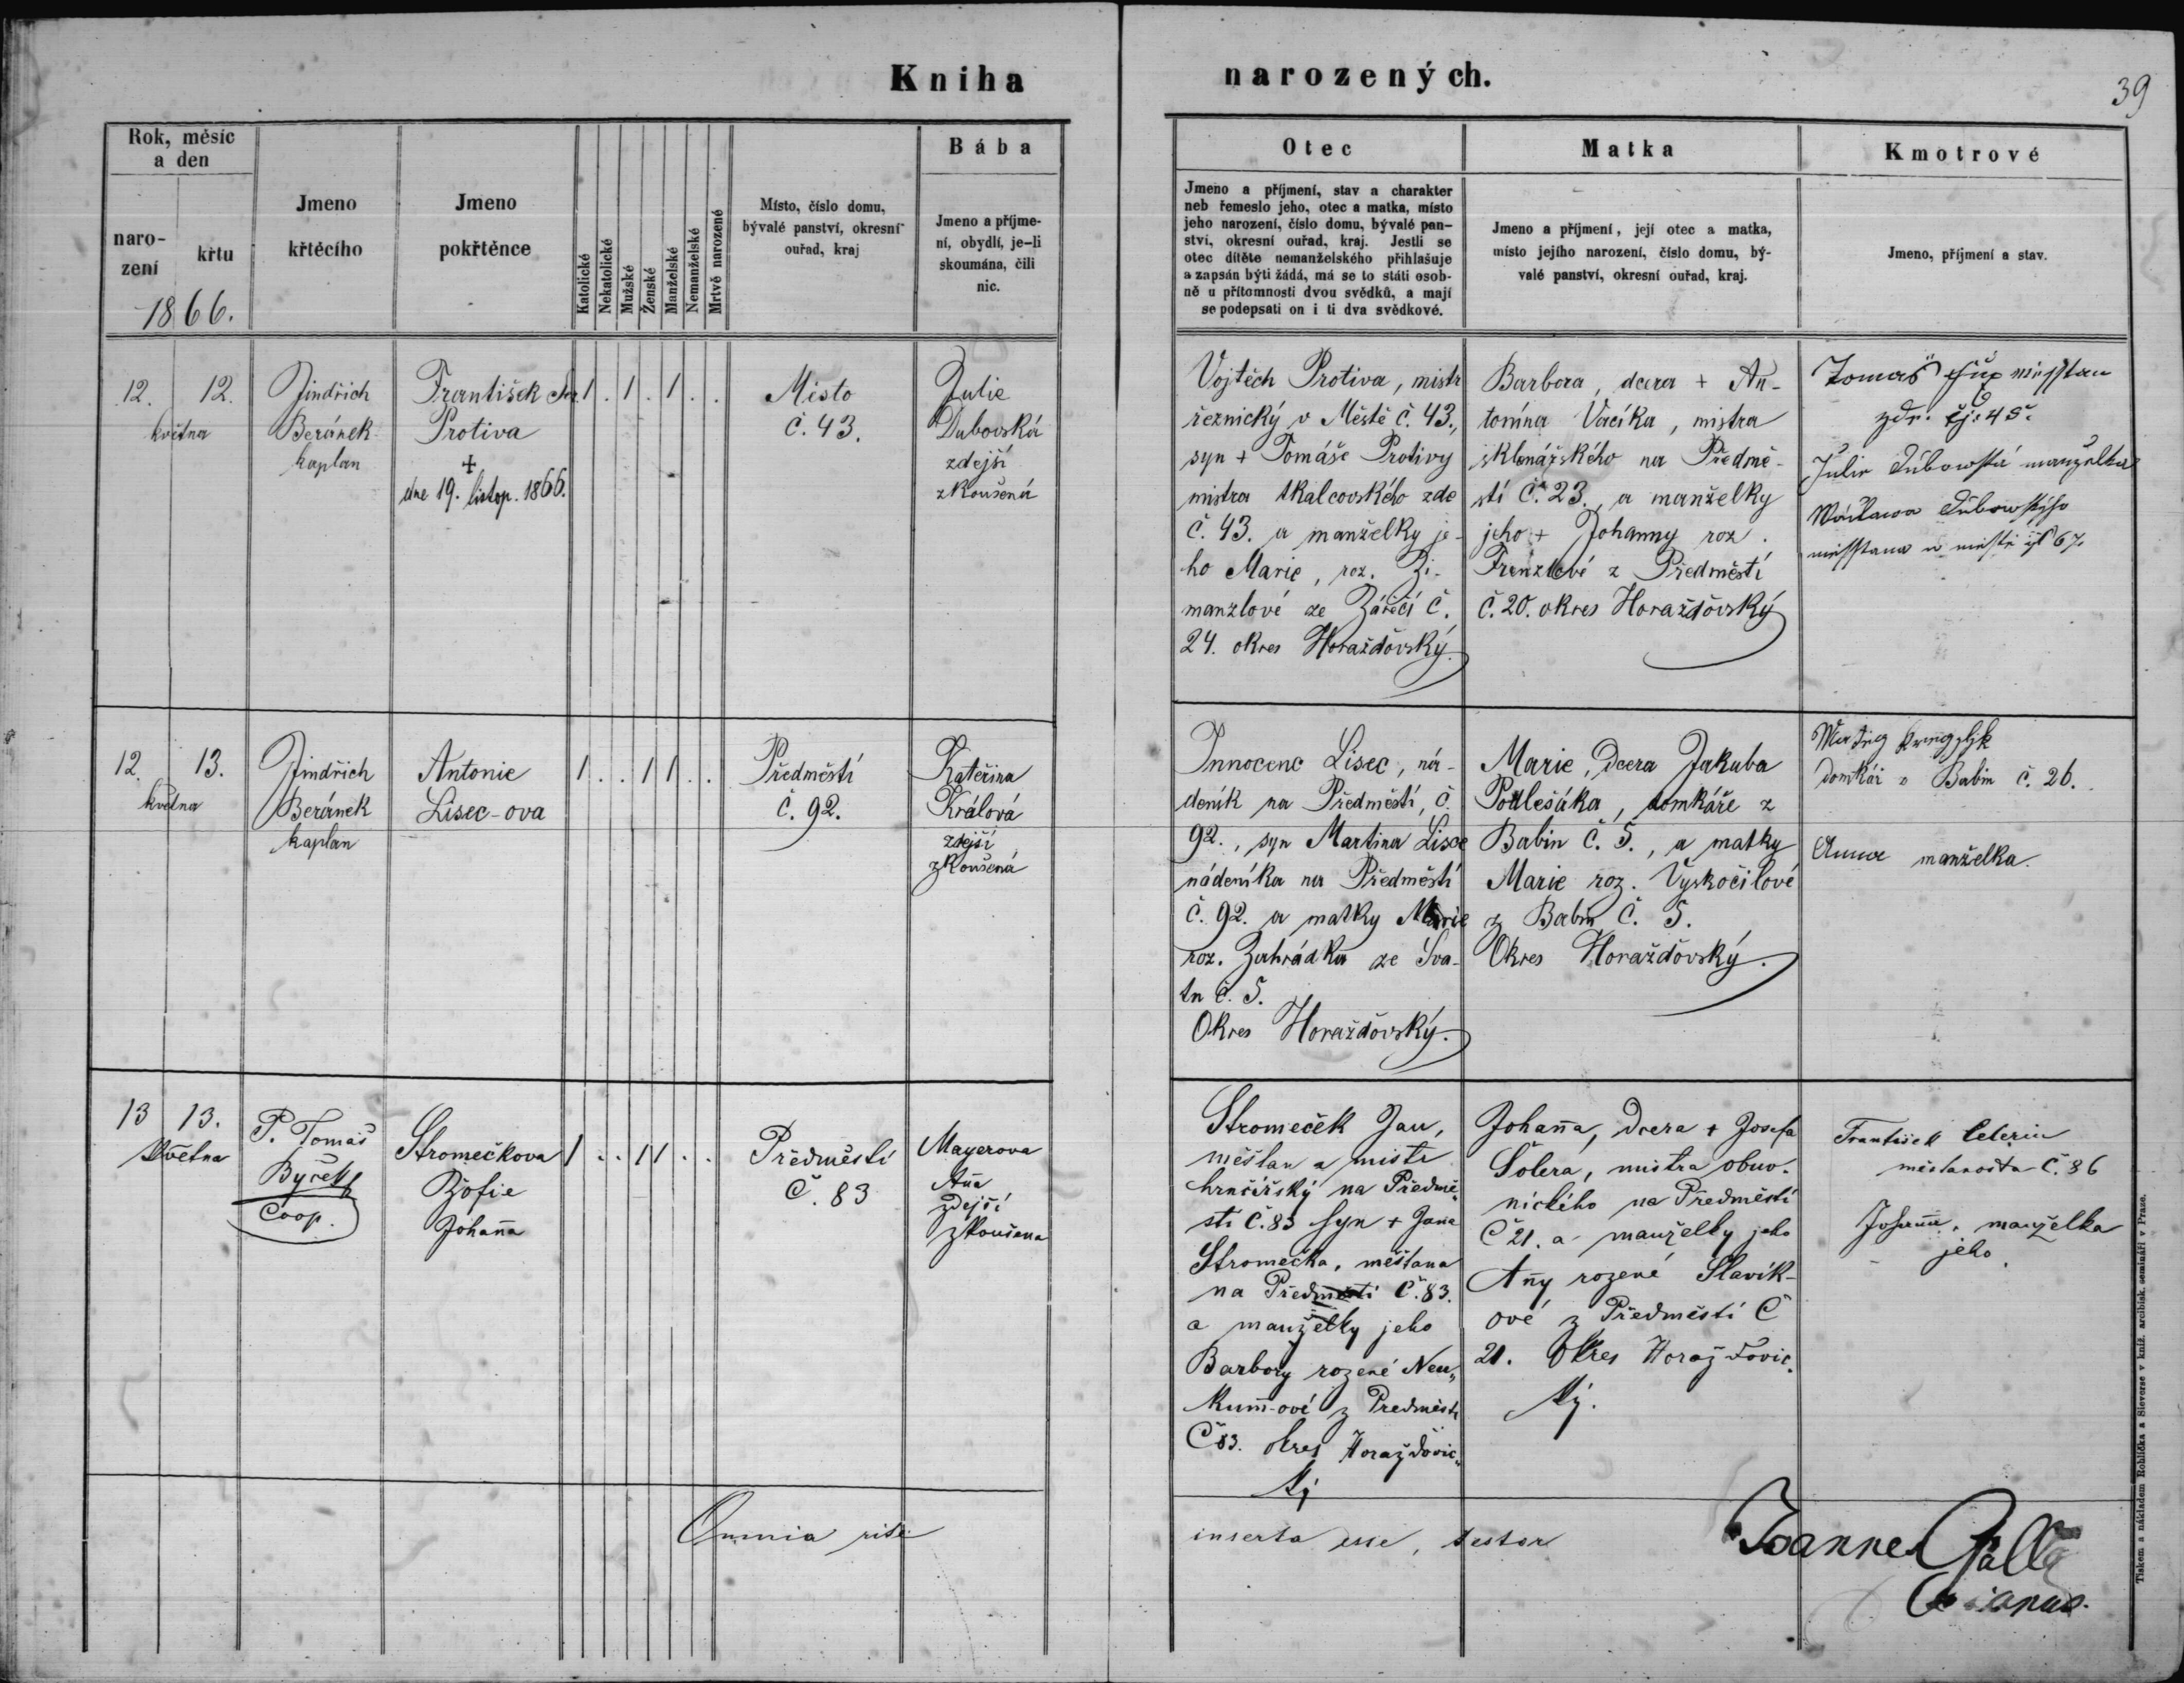 Kniha narozených.
39
Rok, měsíc
a den
naro-
zení
křtu
1866.
Jmeno
křtěcího
Jmeno
pokřtěnce
Katolické
Nekatolické
Mužské
Ženské
Manželské
Nemanželské
Mrtvě narozené
Místo, číslo domu,
bývalé panství, okresní
ouřad, kraj
Bába
Jmeno a příjme-
ní, obydlí, je-li
skoumána, čili
nic.
Otec
Jmeno a příjmení, stav a charakter
neb řemeslo jeho, otec a matka, místo
jeho narození, číslo domu, bývalé pan-
ství, okresní ouřad, kraj. Jestli se
otec dítěte nemanželského přihlašuje
a zapsán býti žádá, má se to státi osob-
ně u přítomnosti dvou svědků, a mají
se podepsati on i ti dva svědkové.
Matka
Jmeno a příjmení, její otec a matka,
místo jejího narození, číslo domu, bý-
valé panství, okresní ouřad, kraj.
Kmotrové
Jmeno, příjmení a stav.
12. 12.
května
Jindřich
Beránek
kaplan
František
Protiva
+
dne 19. listop. 1866.
1 . 1 . 1 . .
Místo
č. 43.
Julie
Dubovská
zdejší
zkoušená
Vojtěch Protiva, mistr
řeznický v Městě č. 43.,
syn + Tomáše Protivy
mistra tkalcovského zde
č. 43. a manželky je-
ho Marie, roz. Zi-
manzlové ze Zářečí č.
24. okres Horažďovský.
Barbora, dcera + An-
tonína Vacíka, mistra
sklenářského na Předmě-
stí č. 23., a manželky
jeho + Johanny roz.
Frenzlové z Předměstí
č. 20. okres Horažďovský
Tomaš
Julie Dubowská manželka
Wáclawa Dubowského
67.
12. 13.
května
Jindřich
Beránek
kaplan
Antonie
Lisec-ova
1 . . 1 1 . .
Předměstí
č. 92.
Kateřina
Králová
zdejší
zkoušená
Innocenc Lisec, ná-
deník na Předměstí, č.
92., syn Martina Lisce
nádeníka na Předměstí
č. 92. a matky Marie
roz. Zahrádka ze Sva-
tn č. 5.
Okres Horažďovský.
Marie, dcera Jakuba
Podlešáka, domkáře z
Babin č. 5., a matky
Marie roz. Vyskočilové
z Babin č. 5.
Okres Horažďovský.
domkář z Babin č. 26.
Anna manželka.
13 13.
Května
P. Tomaš
Byček
Coop.
Stromečkova
Žofie
Johan̅a
1 . . 1 1 . .
Předměstí
Č. 83
Mayerova
An̅a
zdejší
zkoušena
Stromeček Jan,
měšťan a mistr
hrnčířský na Předmě-
stí Č. 83 syn + Jana
Stromečka, měšťana
na Předměstí Č. 83.
a manželky jeho
Barbory rozené Neu„
kum̅-ové z Předměstí
Č 83. okres Horažďovic„
ký
Johan̅a, dcera + Josefa
Šolera, mistra obuv-
nického na Předměstí
Č 21. a manželky jeho
An̅y rozené Slavík-
ové z Předměstí Č
21. Okres Horažďovic-
ký.
František Celerin
měšťanosta Č. 86
Johan̅a, manželka
jeho
Omnia rite inserta esse, testor
Joannes Gallo
Tiskem a nákladem Rohlíčka a Sieverse v kníž. arcibisk. semináři v Praze.